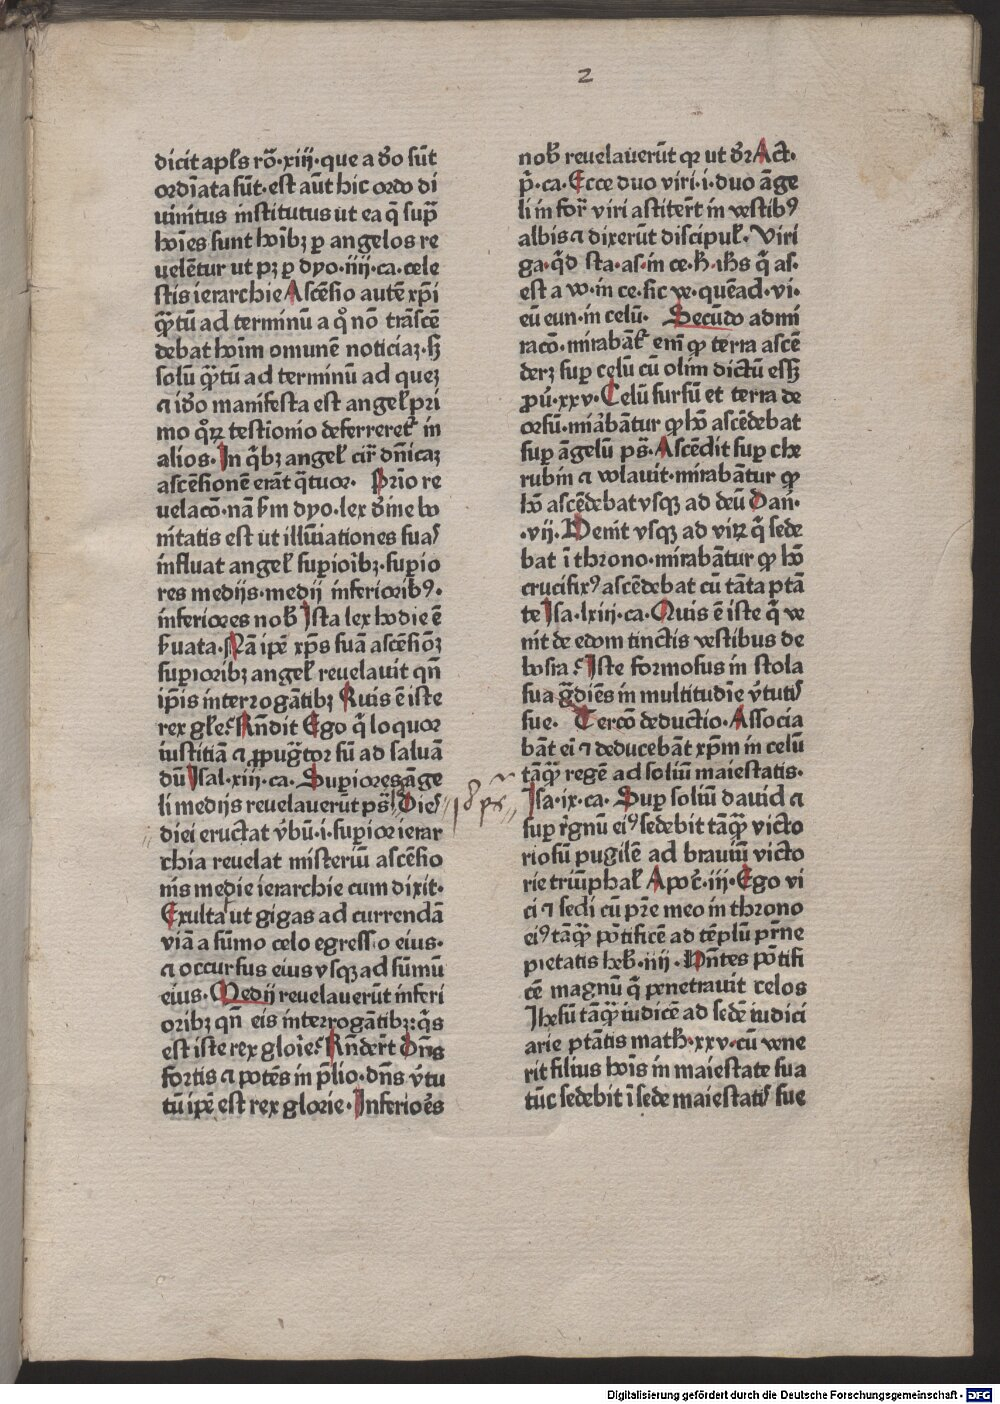 2
dicit apłs rō·xiij·que a dō sūt
ordīata sūt·est aūt hic ordo di
uinitus institutus ut ea q̄ supͣ
hoīes sunt hoībꝫ ꝑ angelos re
uelētur ut pꝫ ꝑ dyo·iiij·ca·cele
stis ierarchie Ascēsio autē xp̄i
qͣ̄tū ad terminū a qͦ nō trāscē
debat hoīm omunē noticiaꝫ·sꝫ
solū qͣ̄tū ad terminū ad queꝫ
⁊ idō manifesta est angeł pri
mo qͦꝝ testīonio deferreret̄ in
alios·In qͥbꝫ angeł cir̄ dn̄icaꝫ
ascēsionē erāt qͣtuor· Prīo re
uelacō·nā ẜm dyo·lex dīne bo
nitatis est ut illūiationes suas
influat angeł supioībꝫ·supio
res medijs·medij inferioribꝰ·
inferiores nob̄ Ista lex hodie ē
ẜuata·Nā ipē xp̄s suā ascēsiōꝫ
supioribꝫ angeł reuelauit qn̄
ip̄is interrogātibꝫ Quis ē iste
rex gl̄e? Rn̄dit Ego q̄ loquor
iustitiā ⁊ ꝓpugͣtor sū ad saluā
dū Isal·xiij·ca·Superiores āge
li medijs reuelauerūt ps̄ Dies
diei eructat v̄bū·i·superior ierar
chia reuelat misteriū ascēsio
nis medie ierarchie cum dixit·
Exulta ut gigas ad currendā
viā a sūmo celo egressio eius·
⁊ occursus eius vsqꝫ ad sūmū
eius·Medij reuelauerūt inferi
oribꝫ qn̄ eis interrogātibꝫ:qͥs
est iste rex gloīe? Rn̄der̄t Dn̄s
fortis ⁊ potēs in p̄lio·dn̄s v̄tu
tū ipē est rex glorie·Inferioēs
nob̄ reuelauerūt qꝛ ut dꝛ̄ Act·
p̄·ca·Ecce duo viri·i·duo āge
li in for̄ viri astiter̄t in vestibꝰ
albis ⁊ dixerūt discipuł·Viri
ga·qͥd sta·as·in ce·h̄·ihs q̄ as·
est a vo·in ce·sic ve·quēad·vi·
eū eun·in celū· Secūdo admi
racō·mirabāt̄ enī qꝙ terra ascē
derꝫ suꝑ celū cū olim dictū essꝫ
ꝓū·xxv·Celū sursū et terra de
orsū·mirabātur ꝙ hō ascēdebat
suꝑ angelū ps̄·Ascēdit suꝑ che
rubin ⁊ volauit·mirabātur ꝙ
hō ascēdebat vsqꝫ ad deū Dan̄·
·vij·Venit vsqꝫ ad virꝝ q̄ sede
bat ī throno·mirabātur ꝙ hō
crucifixꝰ ascēdebat cū tāta ptā
te Isa·lxiij·ca·Quis ē iste q̄ ve
nit de edom tinctis vestibus de
bosra? Iste formosus in stola
sua gͣdiēs in multitudīe v̄tutis
sue· Tercō deductio·Associa
bāt ei ⁊ deducebāt xp̄m in celū
tāqͣ̄ regē ad soliū maiestatis·
Isa·ix·ca·Suꝑ soliū dauid ⁊
suꝑ r̄gnū eiꝰ sedebit tāqͣ̄ victo
riosū pugilē ad brauiū victo
rie triūphał Apoc̄·iij·Ego vi
ci ⁊ sedi cū pr̄e meo in throno
eiꝰ tāqͣ̄ pōtificē ad tēplū pr̄ne
pietatis heb̄·iiij·Hn̄tes pōtifi
cē magnū q̄ penetrauit celos
Ihesū tāqͣ̄ iudicē ad sedē iudici
arie ptātis math̄·xxv·cū vene
rit filius hoīs in maiestate sua
tūc sedebit ī sede maiestatis sue
Digitalisierung gefördert durch die Deutsche Forschungsgemeinschaft · DFG